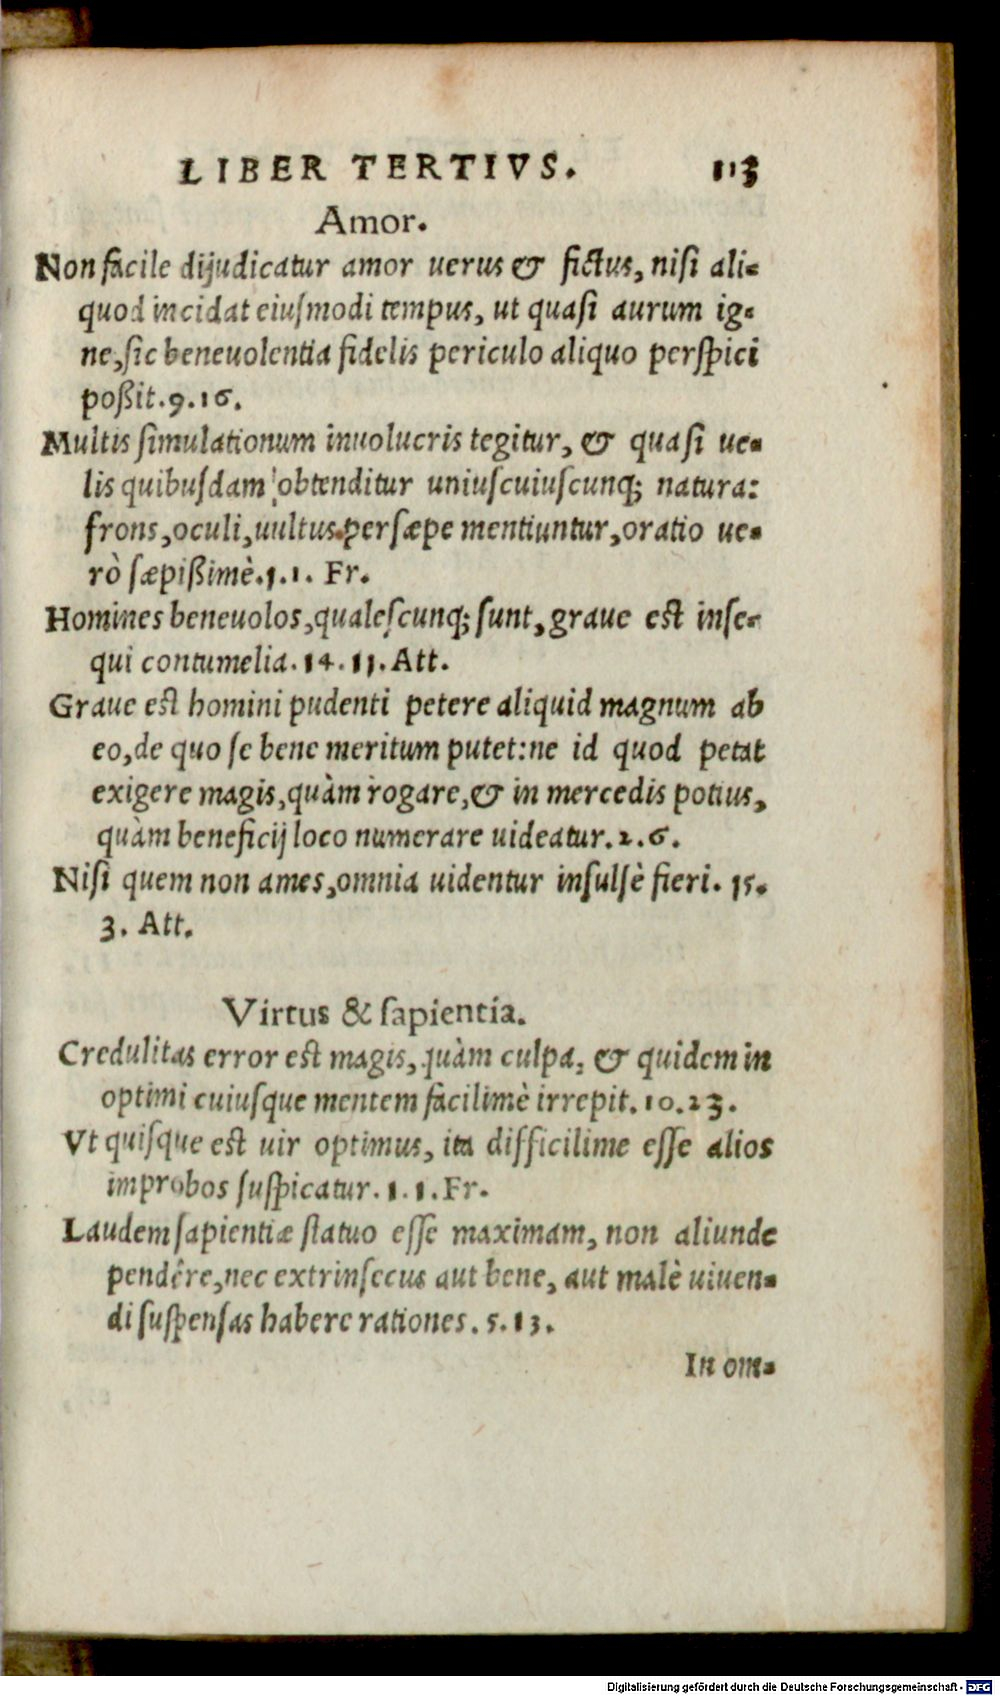 LIBER TERTIVS. 113
Amor.
Non facile dijudicatur amor uerus & fictus, nisi ali-
quod incidat eiusmodi tempus, ut quasi aurum ig-
ne, sic beneuolentia fidelis periculo aliquo perspici
poßit. 9. 16.
Multis simulationum inuolucris tegitur, & quasi ue-
lis quibusdam obtenditur uniuscuiuscunq; natura:
frons, oculi, uultus persæpe mentiuntur, oratio ue-
rò sæpißimè. 1. 1. Fr.
Homines beneuolos, qualescunq; sunt, graue est inse-
qui contumelia. 14. 11. Att.
Graue est homini pudenti petere aliquid magnum ab
eo, de quo se bene meritum putet: ne id quod petat
exigere magis, quàm rogare, & in mercedis potius,
quàm beneficij loco numerare uideatur. 2. 6.
Nisi quem non ames, omnia uidentur insulsè fieri. 15.
3. Att.
Virtus & sapientia.
Credulitas error est magis, quàm culpa, & quidem in
optimi cuiusque mentem facilimè irrepit. 10. 23.
Vt quisque est uir optimus, ita difficilime esse alios
improbos suspicatur. 1. 1. Fr.
Laudem sapientiæ statuo esse maximam, non aliunde
pendêre, nec extrinsecus aut bene, aut malè uiuen-
di suspensas habere rationes. 5. 13.
In om-
Digitalisierung gefördert durch die Deutsche Forschungsgemeinschaft - DFG